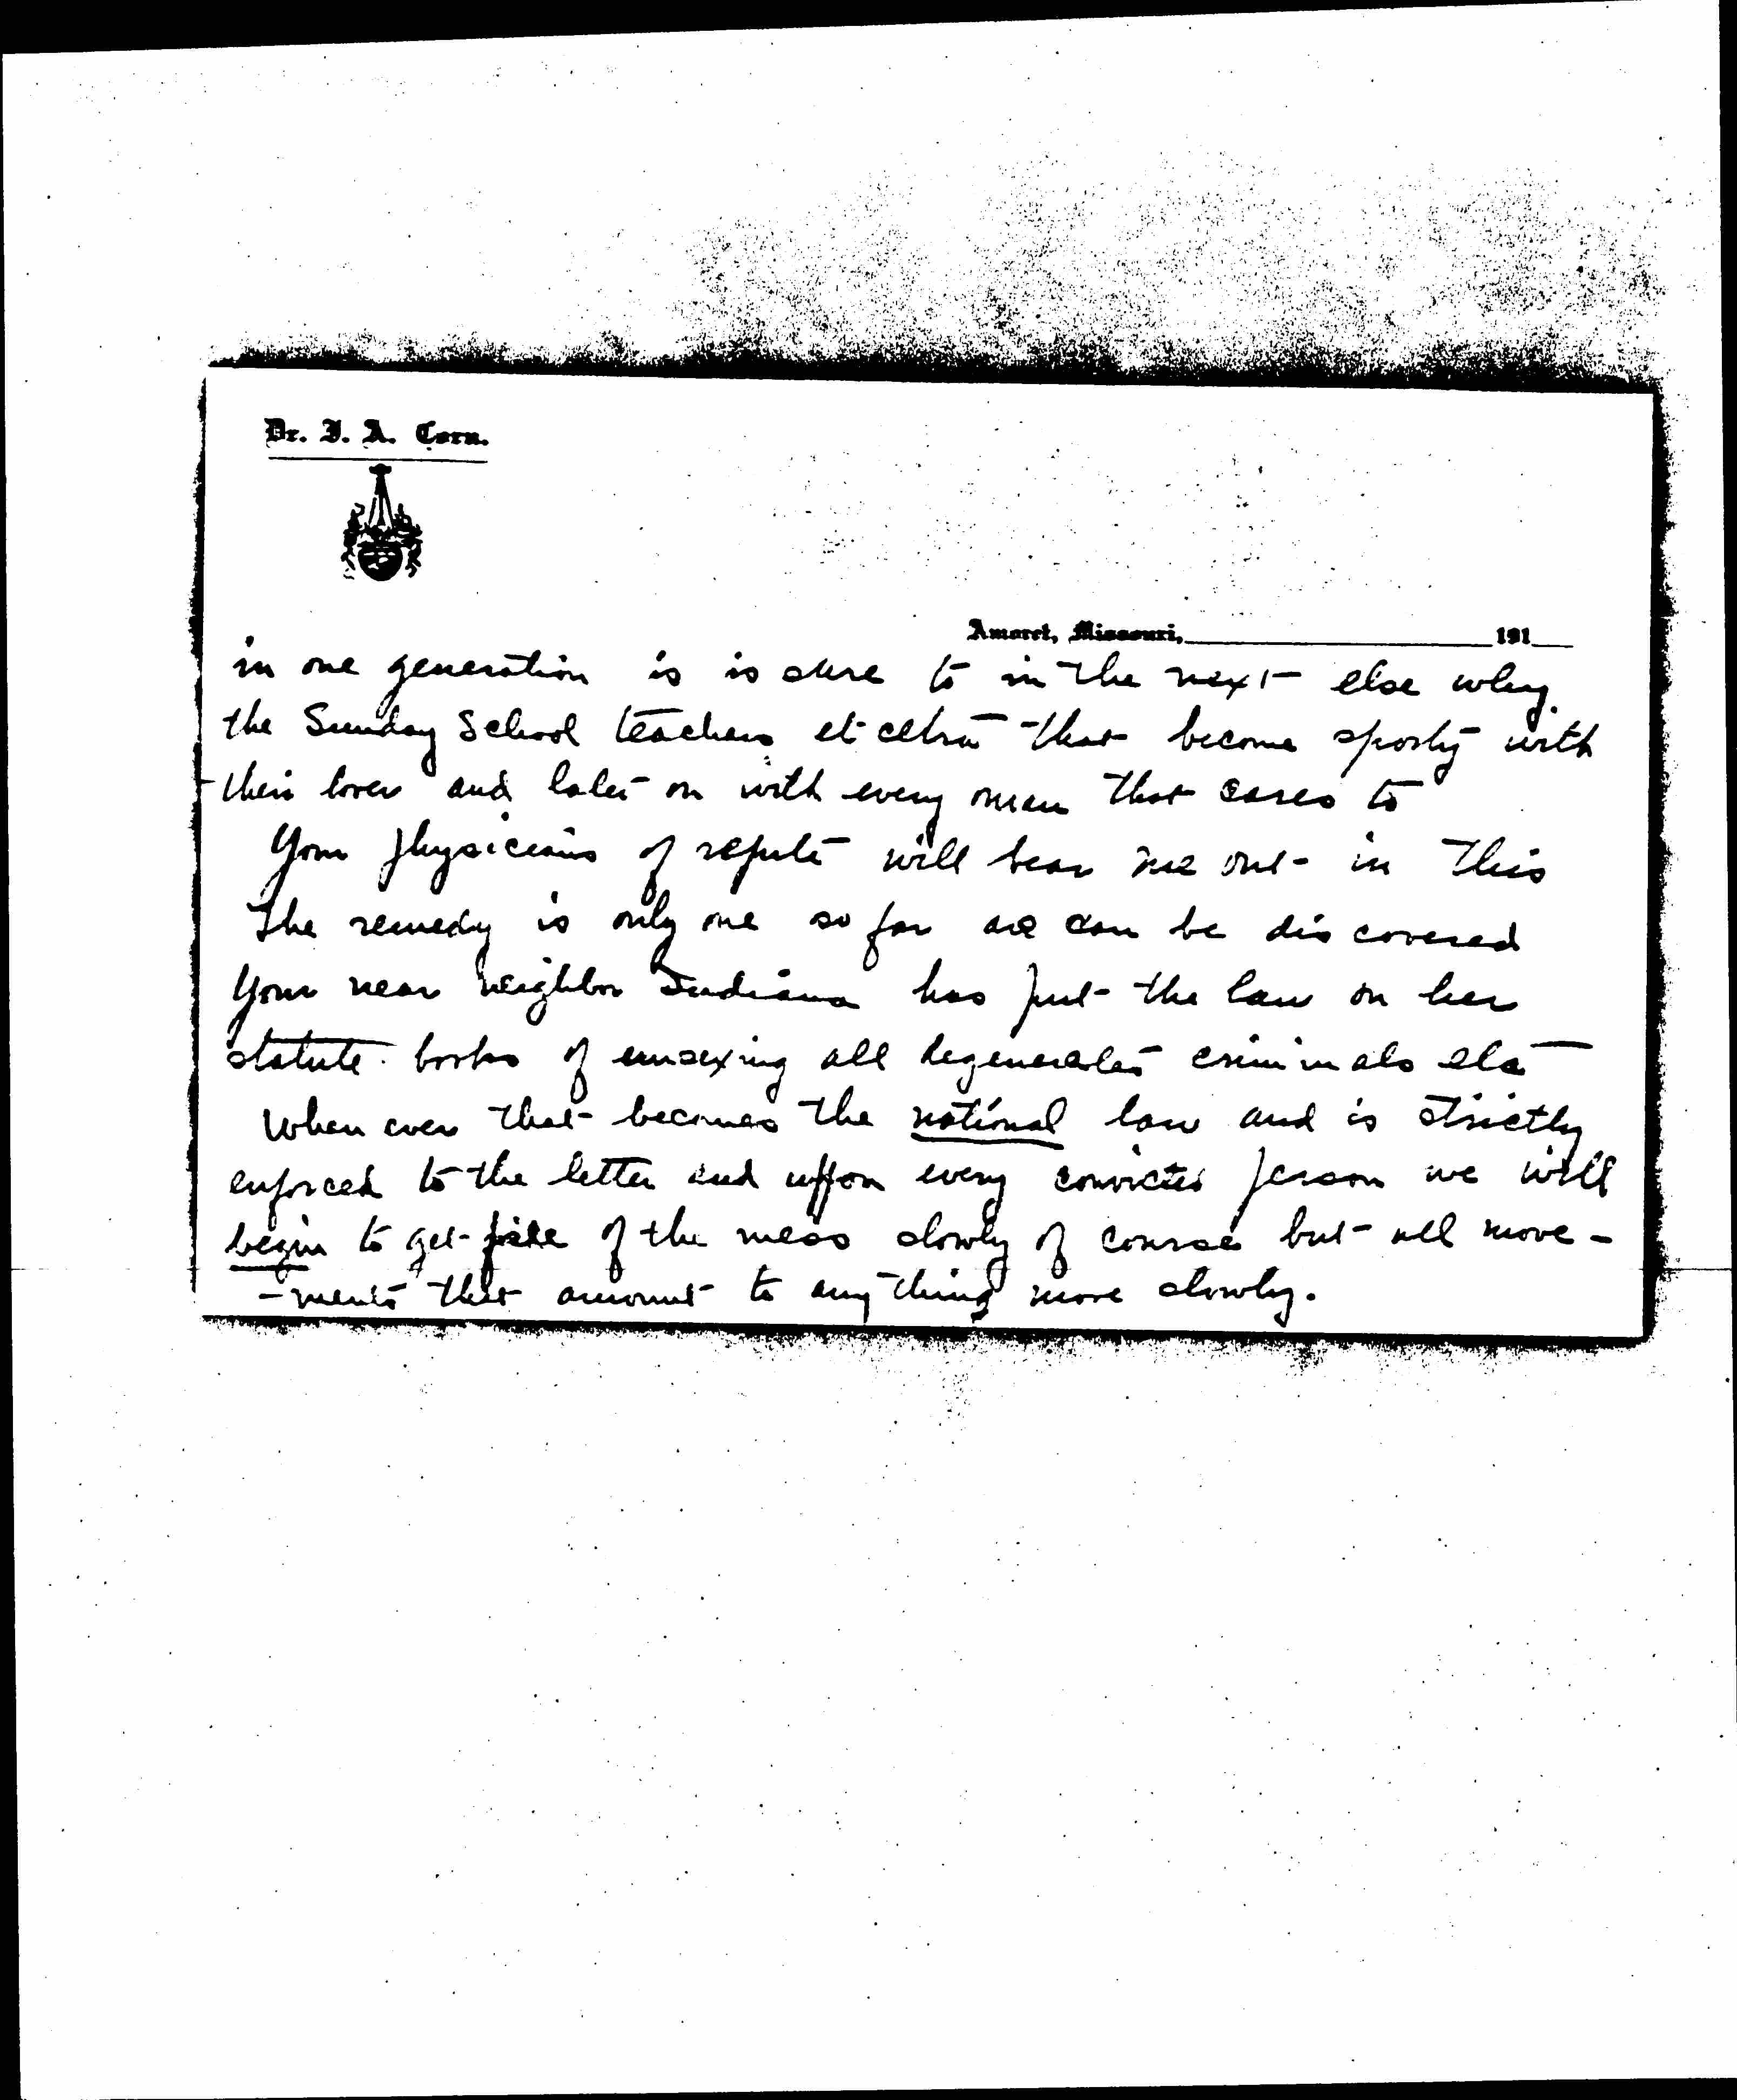 Dr. J. A. Corn.
Amoret, Missouri, 191
in one generation is is sure to in the next else why
the Sunday School teachers et cetra that become sporty with
their lover and later on with every man that cares to
Your physicians of repute will bear me out in this
The remedy is only one so far as can be dis covered
Your near neighbor Indiana has put the law on her
statute books of unsexing all degenerates criminals etc
When ever that becomes the national law and is strictly
enforced to the letter and uppon every convicted person we will
begin to get of the mess slowly of course but all move-
-ments that amount to any thing move slowly.